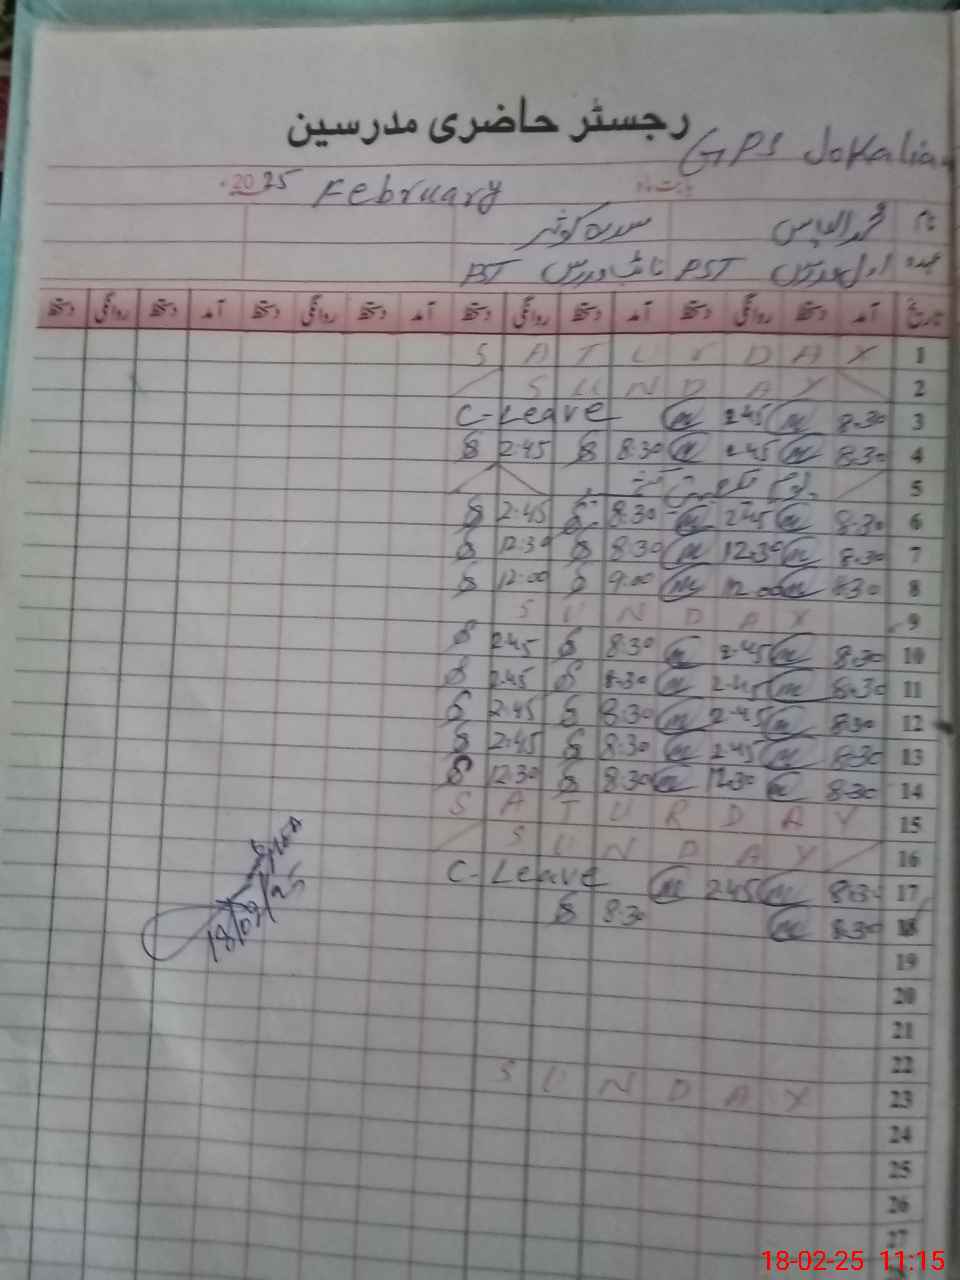 رجسٹر حاضری مدرسین
GPS Jokalian
بابت ماہ February 2025
نام محمد الیاس سدرہ کوثر
عہدہ اول مدرس PST نائب مدرس PST
تاریخ آمد دستخط روانگی دستخط آمد دستخط روانگی دستخط آمد دستخط روانگی دستخط آمد دستخط روانگی دستخط
1 SATURDAY
2 SUNDAY
3 8.30 2.45 C-Leave
4 8.30 2.45 8.30 2.45
5
6 8.30 2.45 8.30 2.45
7 8.30 12.30 8.30 12.30
8 8.30 12.00 9.00 12.00
9 SUNDAY
10 8.30 2.45 8.30 2.45
11 8.30 2.45 8.30 2.45
12 8.30 2.45 8.30 2.45
13 8.30 2.45 8.30 2.45
14 8.30 12.30 8.30 12.30
15 SATURDAY
16 SUNDAY
17 8.30 2.45 C-Leave
18 8.30 8.30
18/02/25
19
20
21
22
23 SUNDAY
24
25
26
27
18-02-25 11:15